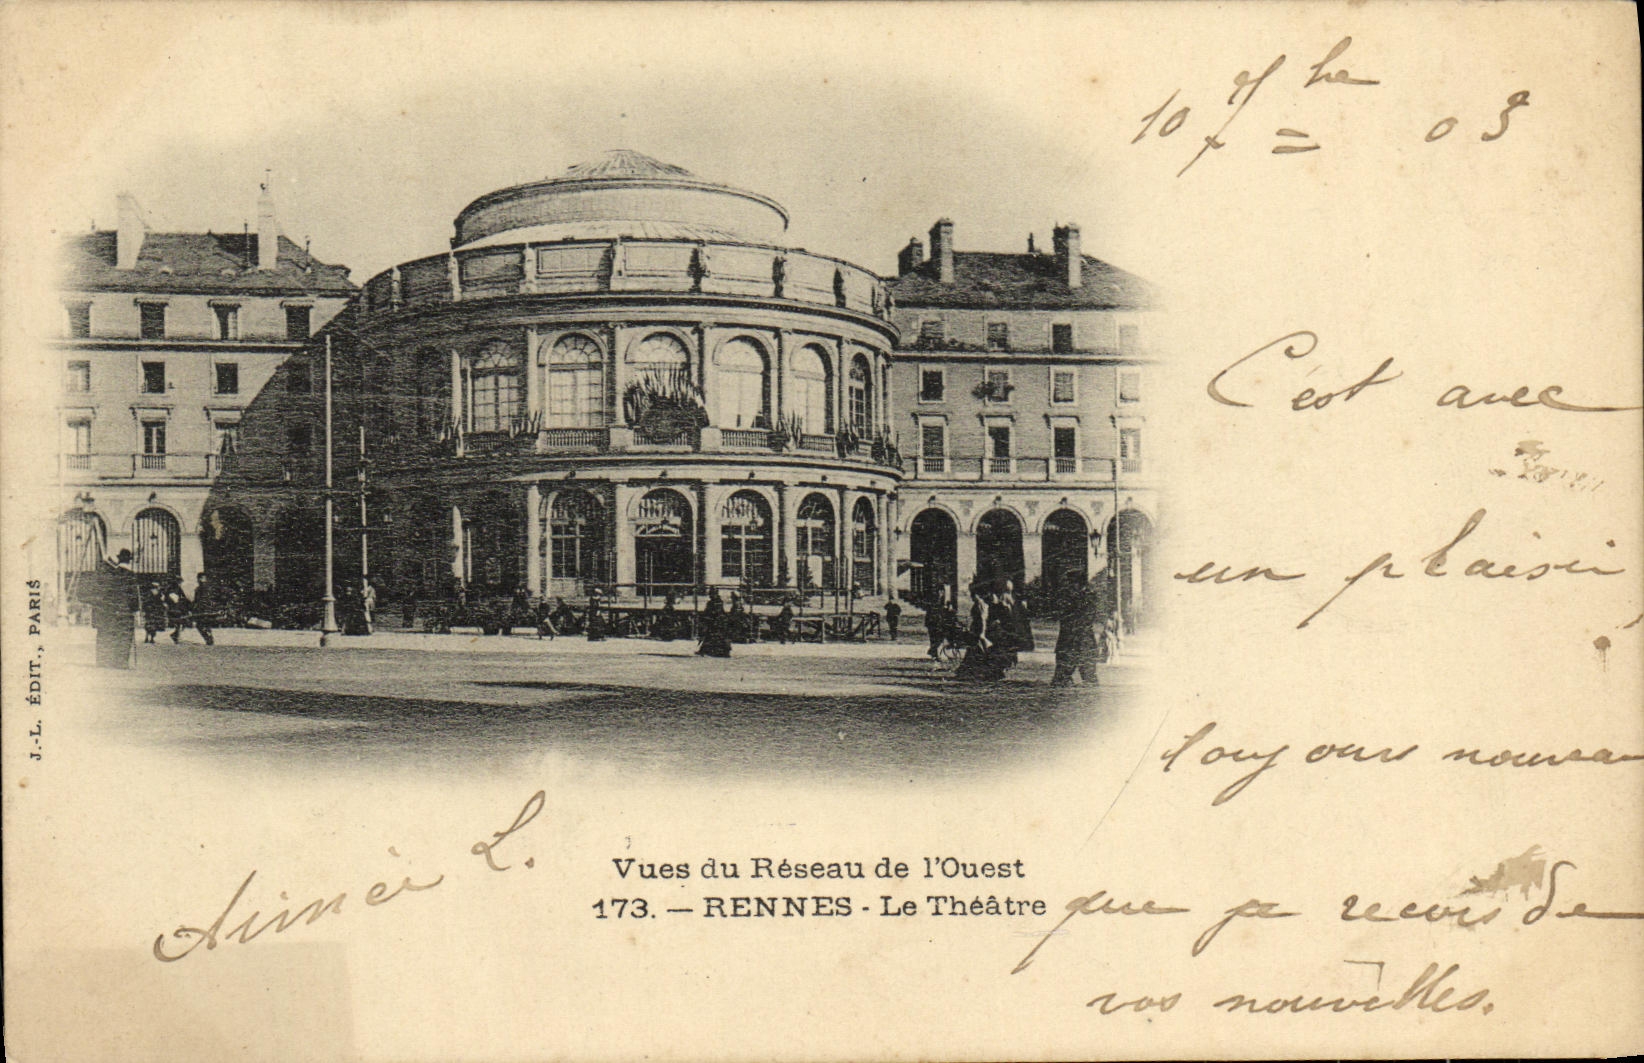 10 7bre 03
C'est avec
un plaisir
toujours nouveau
que je recois de
vos nouvelles.
Aimée L.
Vues du Réseau de l'Ouest
173. — RENNES - Le Théâtre
J.-L. ÉDIT., PARIS